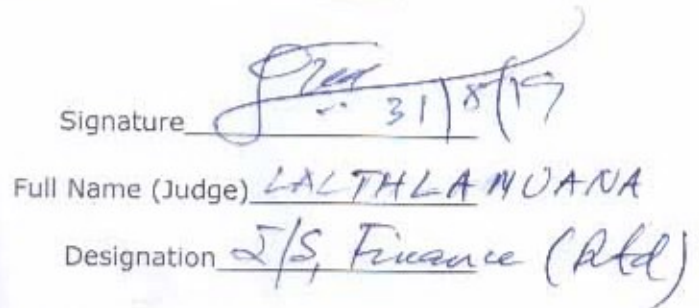 Signature 31/8/19
Full Name (Judge) LALTHLAMUANA
Designation J/S, Finance (Rtd)